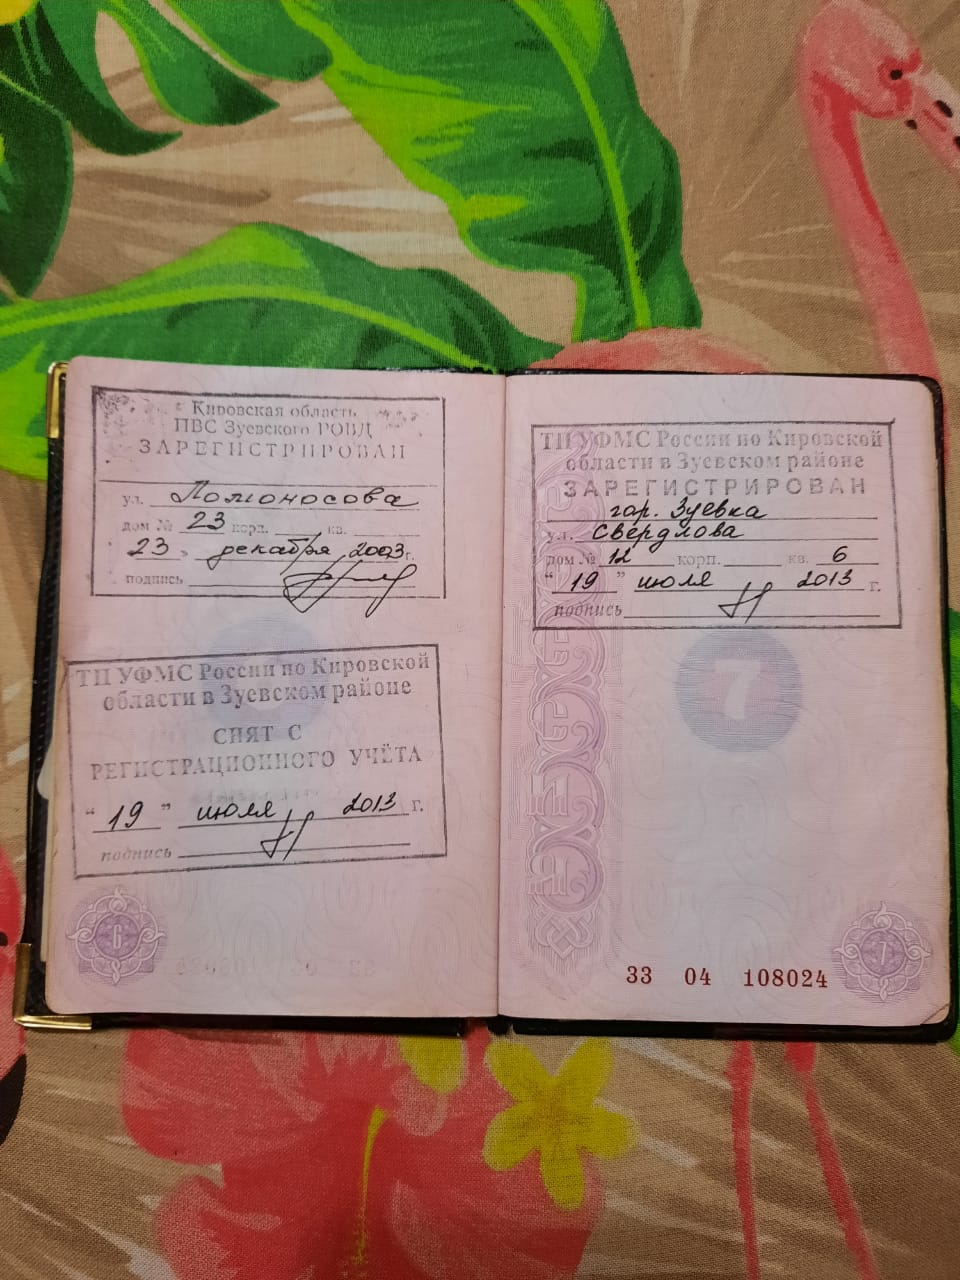 Кировская область
ПВС Зуевского РОВД
ЗАРЕГИСТРИРОВАН
ул. Ломоносова
дом № 23 корп. кв.
23 " декабря 2003г.
подпись
ТП УФМС России по Кировской
области в Зуевском районе
СНЯТ С
РЕГИСТРАЦИОННОГО УЧЁТА
" 19 " июля 2013 г.
подпись
6
ТП УФМС России по Кировской
области в Зуевском районе
ЗАРЕГИСТРИРОВАН
гор. Зуевка
ул. Свердлова
дом № 12 корп. кв. 6
" 19 " июля 2013 г.
подпись
7
33 04 108024
7